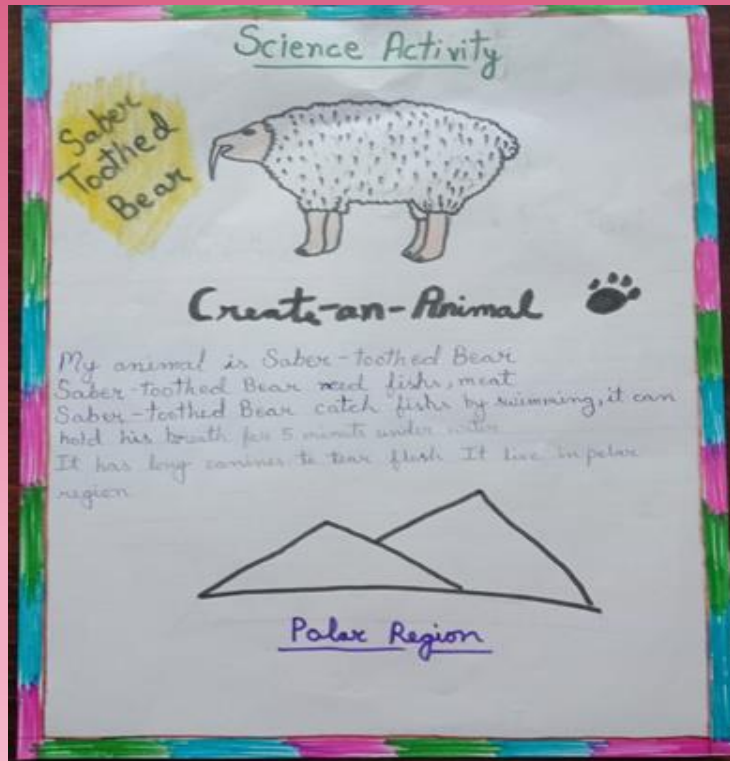 Science Activity
Saber
Toothed
Bear
Create-an-Animal
My animal is Saber-toothed Bear
Saber-toothed Bear need fishs, meat
Saber-toothed Bear catch fishs by swimming, it can
hold his breath for 5 minute under water
It has long canines to tear flesh It live in polar
region
Polar Region